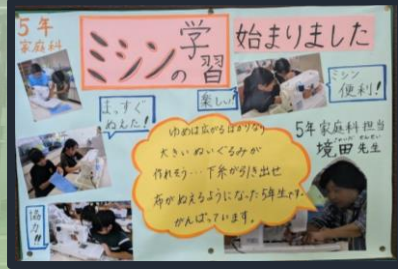 5年
家庭科
ミシンの学習
始まりました
まっすぐ
ぬえた!
楽しい!
ミシン
便利!
ゆめは広がるばかりなり
大きいぬいぐるみが
作れそう…下糸が引き出せ
布がぬえるようになった5年生です。
がんばっています。
5年家庭科担当
境田先生
協力!!